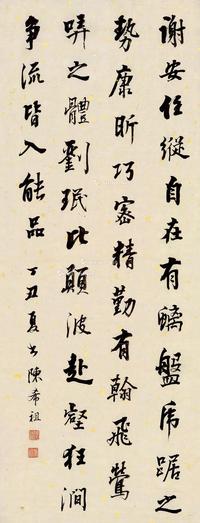 謝安任縱自在有螭盤虎踞之
勢康昕巧密精勤有翰飛鶯
哢之體劉珉比顛波赴壑狂澗
争流皆入能品
丁丑夏書陳希祖